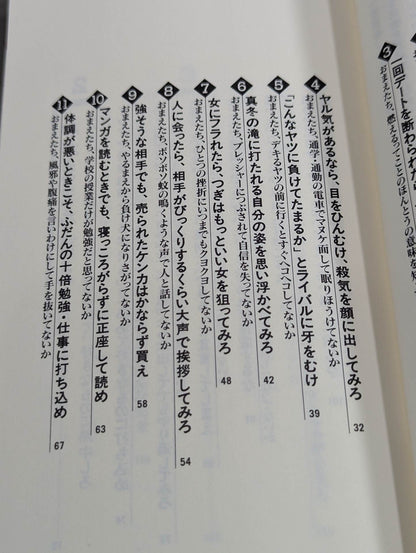 3 一回デートを断わられた
おまえたち、燃えるってことのほんとうの意味を知
4 ヤル気があるなら、目をひんむけ、殺気を顔に出してみろ 32
おまえたち、通学・通勤の電車でマヌケ面して眠りほうけてないか
5 「こんなヤツに負けてたまるか」とライバルに牙をむけ 39
おまえたち、デキるヤツの前に行くとすぐペコペコしてないか
6 真冬の滝に打たれる自分の姿を思い浮かべてみろ 42
おまえたち、プレッシャーにつぶされて自信を失ってないか
7 女にフラれたら、つぎはもっといい女を狙ってみろ 48
おまえたち、ひとつの挫折にいつまでもクヨクヨしてないか
8 人に会ったら、相手がびっくりするくらい大声で挨拶してみろ 54
おまえたち、ボソボソ蚊の鳴くような声で人と話してないか
9 強そうな相手でも、売られたケンカはかならず買え 58
おまえたち、やるまえから負け犬になりさがってないか
10 マンガを読むときでも、寝っころがらずに正座して読め 63
おまえたち、学校の授業だけが勉強だと思ってないか
11 体調が悪いときこそ、ふだんの十倍勉強・仕事に打ち込め 67
おまえたち、風邪や腹痛を言いわけにして手を抜いてないか